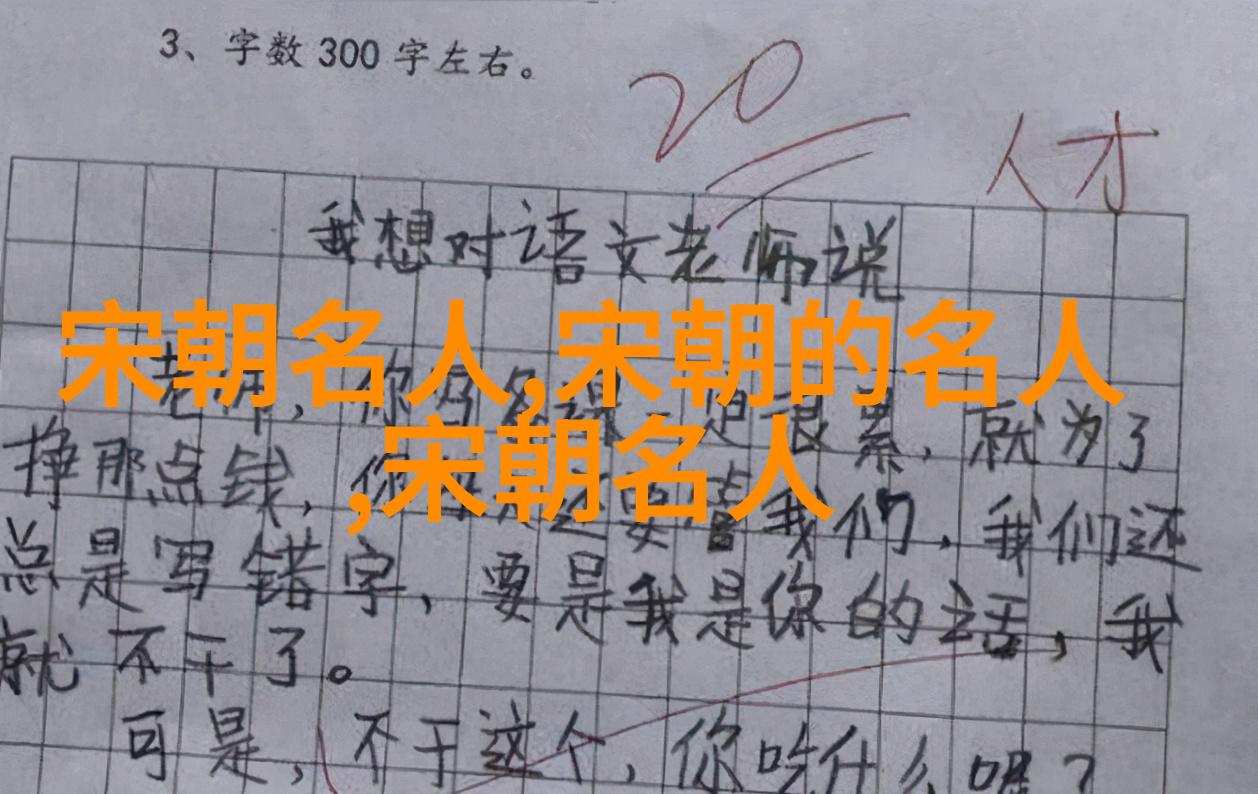 3、字数300字左右。
20
人才
我想对语文老师说
宋朝名人,宋朝的名人
,宋朝名人
老师,你 是很累,就为了
挣那点钱,你 我们,我们还
总是写错字,要是我是你的话,我
就不干了。
可是,不干这个,你吃什么呢?